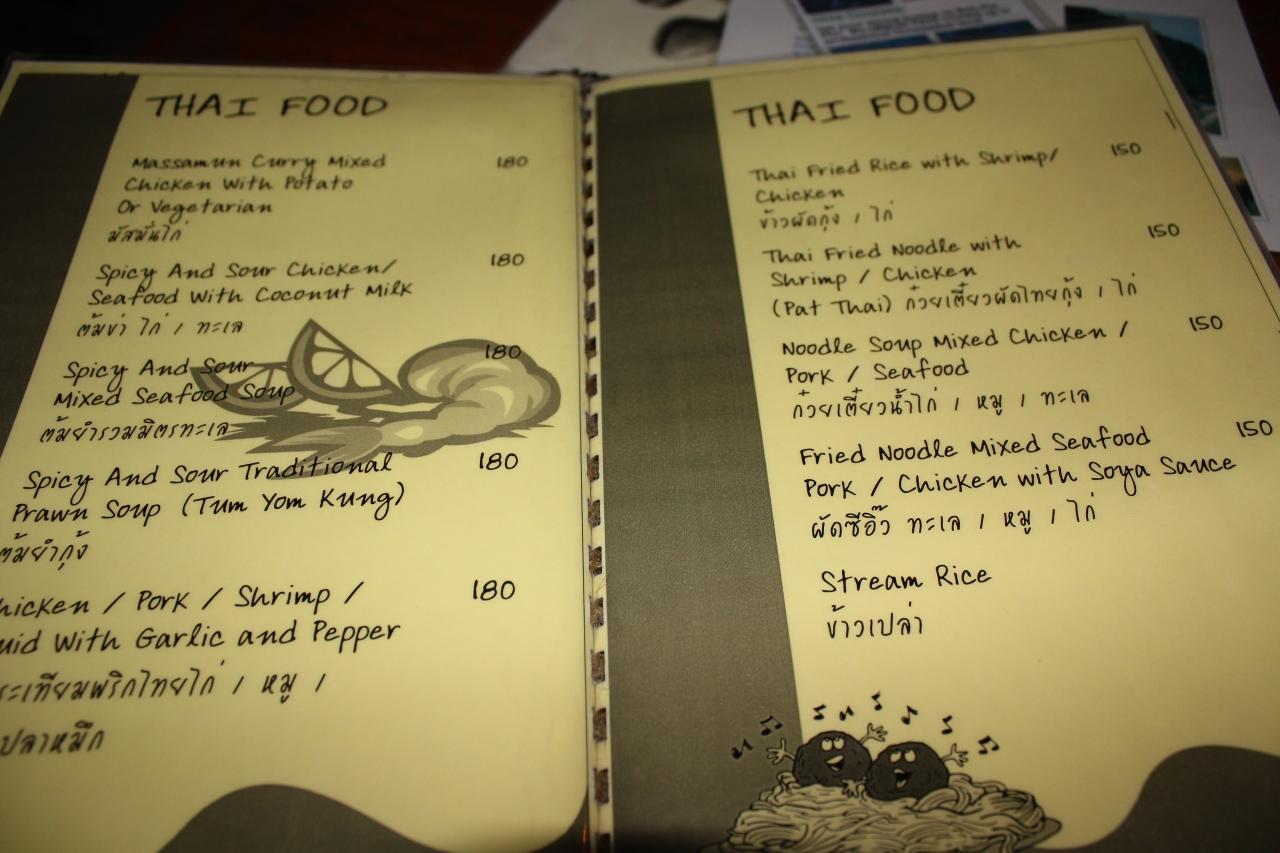 THAI FOOD
Massamun Curry Mixed 180
Chicken With Potato
Or Vegetarian
มัสมั่นไก่
Spicy And Sour Chicken/ 180
Seafood With Coconut Milk
ต้มข่า ไก่ / ทะเล
Spicy And Sour 180
Mixed Seafood Soup
ต้มยำรวมมิตรทะเล
Spicy And Sour Traditional 180
Prawn Soup (Tum Yom Kung)
ต้มยำกุ้ง
hicken / Pork / Shrimp / 180
uid With Garlic and Pepper
ระเทียมพริกไทยไก่ / หมู /
ปลาหมึก
THAI FOOD
Thai Fried Rice with Shrimp/ 150
Chicken
ข้าวผัดกุ้ง / ไก่
Thai Fried Noodle with 150
Shrimp / Chicken
(Pat Thai) ก๋วยเตี๋ยวผัดไทยกุ้ง / ไก่
Noodle Soup Mixed Chicken / 150
Pork / Seafood
ก๋วยเตี๋ยวน้ำไก่ / หมู / ทะเล
Fried Noodle Mixed Seafood 150
Pork / Chicken with Soya Sauce
ผัดซีอิ๊ว ทะเล / หมู / ไก่
Stream Rice
ข้าวเปล่า